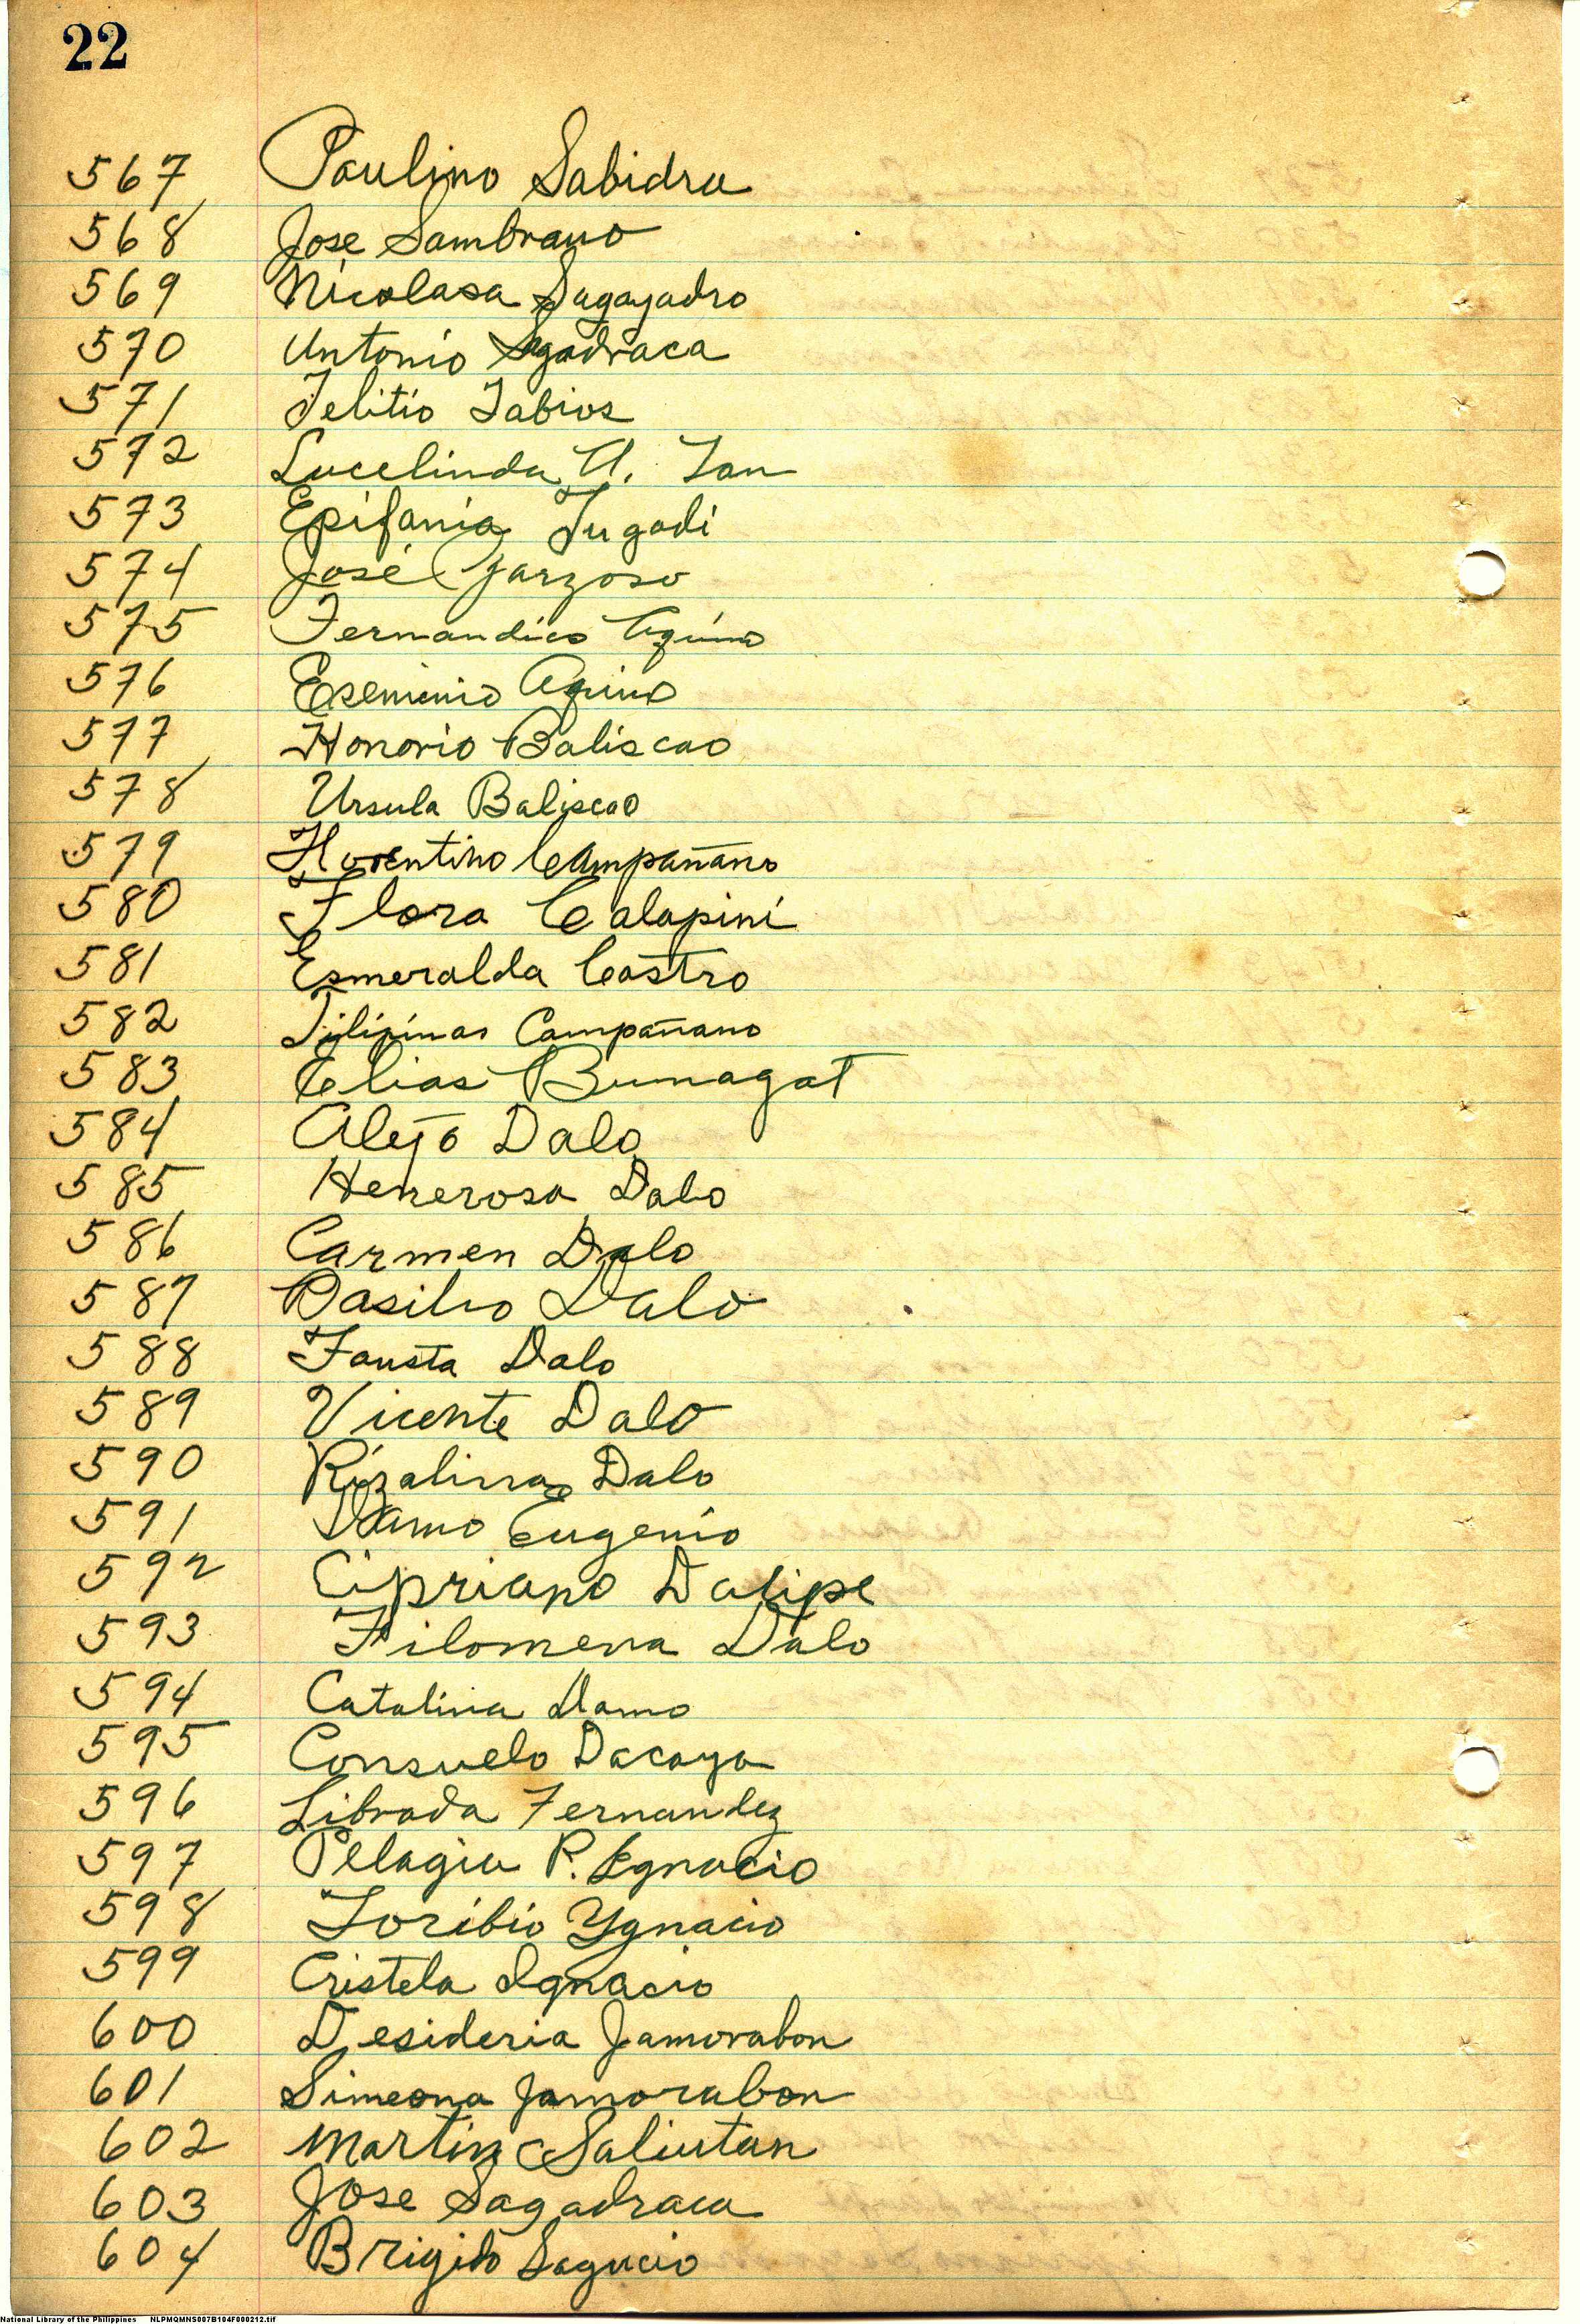 22
567 Paulino Sabidra
568 Jose Sambrano
569 Nicolasa Sagayadro
570 Antonio Sagadraca
571 Felitio Tabios
572 Lucelinda A. Tan
573 Epifania Tugadi
574 José Garzoso
575 Fernandico Aquino
576 Eseminio Aquino
577 Honorio Baliscao
578 Ursula Baliscao
579 Florentino Campañano
580 Flora Calapini
581 Esmeralda Castro
582 Filipinas Campañano
583 Elias Bumagat
584 Alejo Dalo
585 Henerosa Dalo
586 Carmen Dalo
587 Basilio Dalo
588 Fausta Dalo
589 Vicente Dalo
590 Rizalina Dalo
591 Damo Eugenio
592 Cipriano Dalipe
593 Filomena Dalo
594 Catalina Damo
595 Consuelo Dacaya
596 Librada Fernandez
597 Pelagia P. Ignacio
598 Toribio Ygnacio
599 Cristela Ignacio
600 Desideria Jamorabon
601 Simeona Jamorabon
602 Martin Saliutan
603 Jose Sagadraca
604 Brigido Sagucio
National Library of the Philippines NLPMQMNS007B104F000212.tif